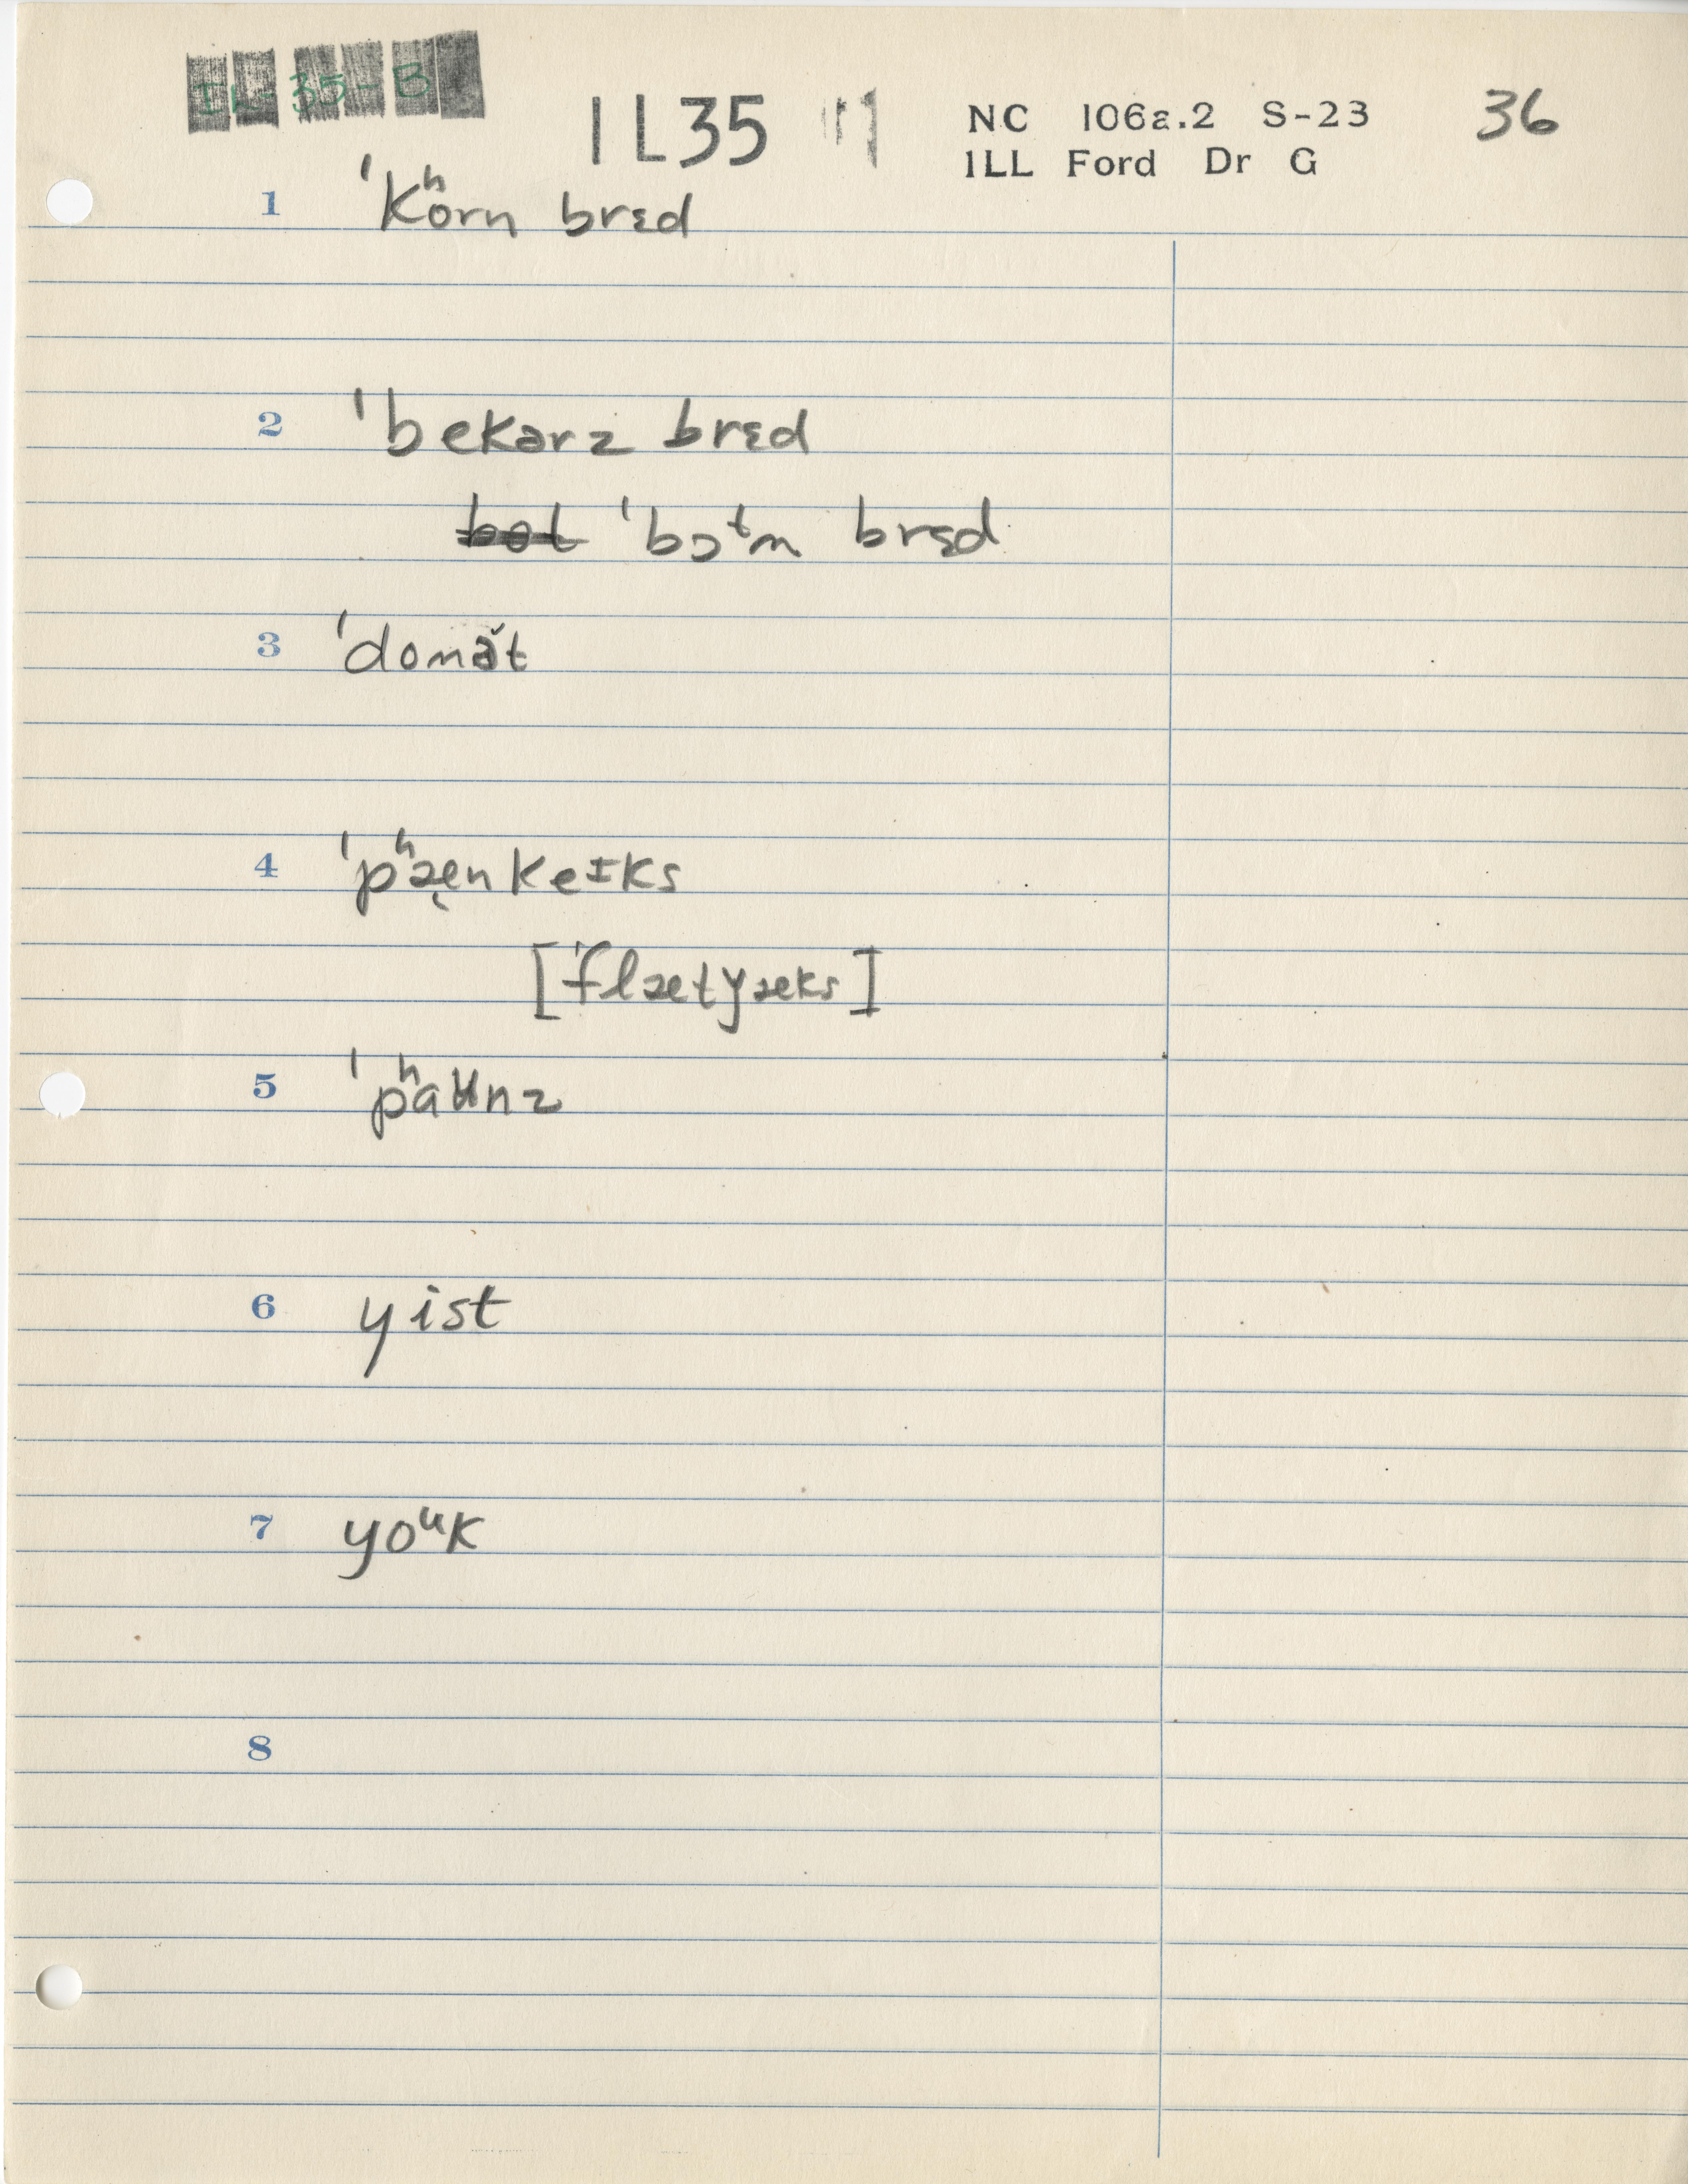 IL-35-B
IL35
NC 106a.2 S-23 36
ILL Ford Dr G
1 ˈkʰorn brɛd
2 ˈbekərz brɛd
ˈbɔᵗm brɛd
3 ˈdonə̆t
4 ˈpʰæ̨nkeɪks
[ˈflætyæks]
5 ˈpʰaʉnz
6 yist
7 yoᵘk
8